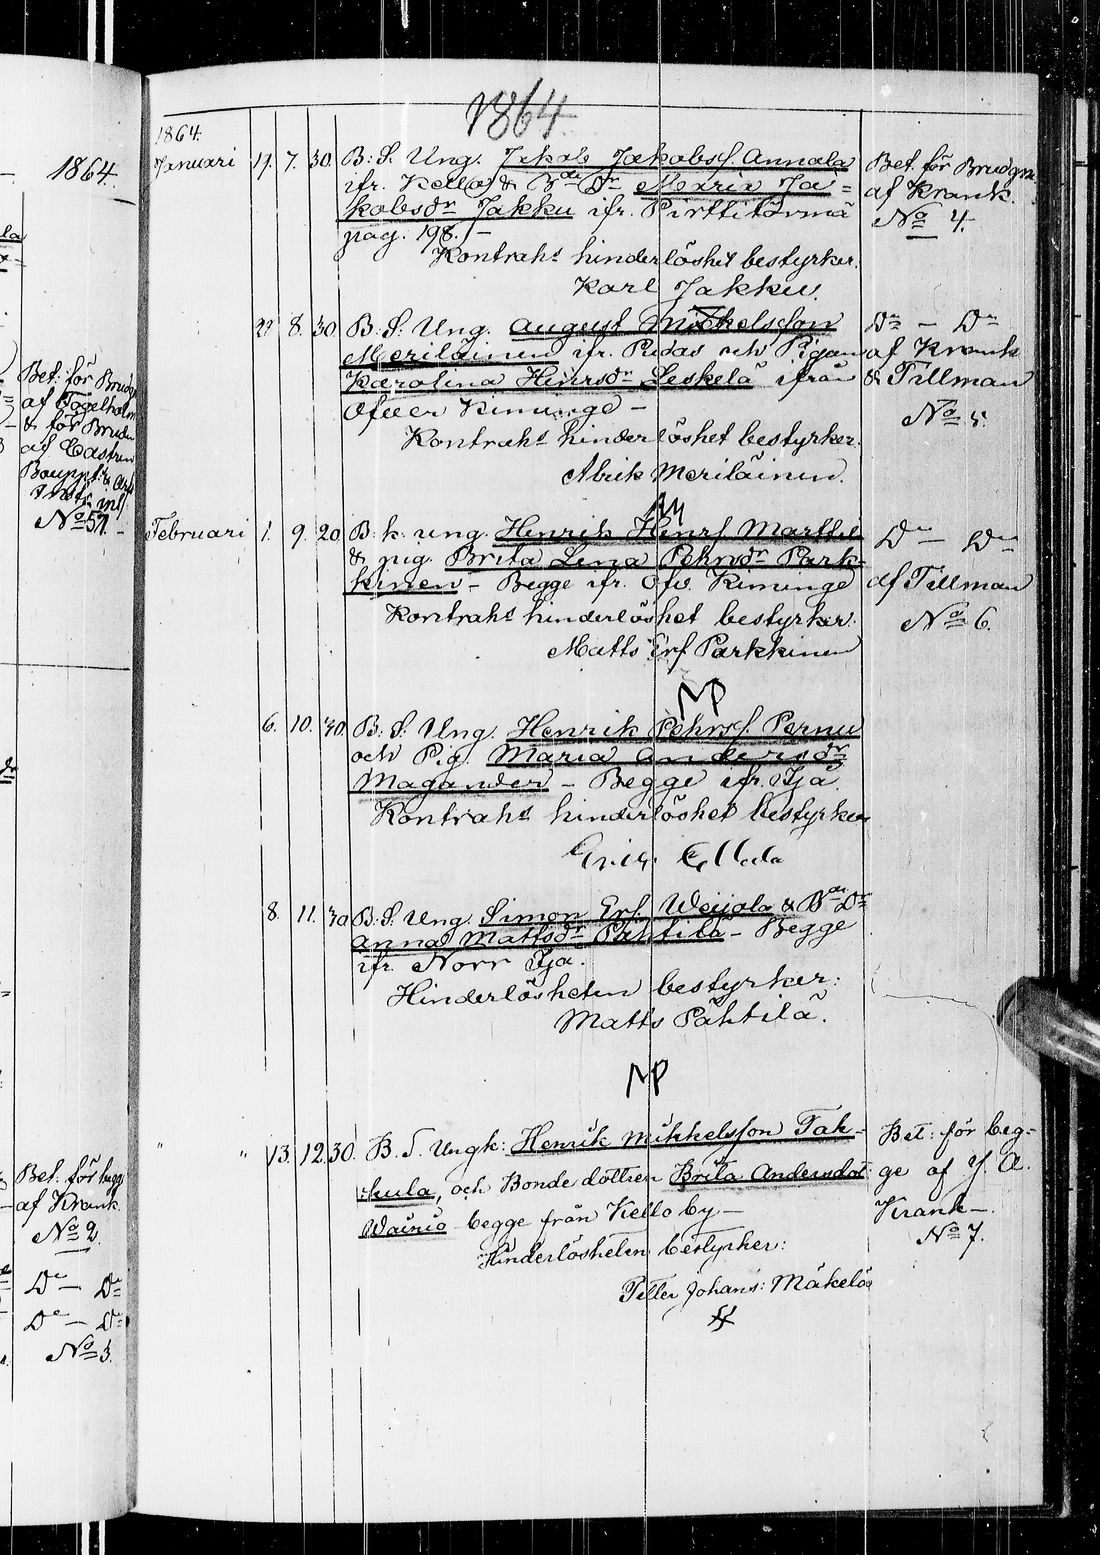 1864.
Bet: för Brudg
af Fogelholm
& för Bruden
af Castren
No 57.
Bet: för begge
af Krank
No 2.
Do — Do
Do — Do
No 3.
1864
1864.
Januari 7. 30. B: S. Ung. Jakob Jakobss. Annala
ifr. Kello & Bde Dr Maria Ja=
kobsdr Jakku ifr. Pirttitörmä
pag. 198. —
Kontrahs hinderlöshet bestyrker.
Karl Jakku.
Bet. för Brudgm
af Krank.
No 4.
8. 30. B. S. Ung. August Mickelsson
Meriläinen ifr. Pudas och Pigan
Karolina Henrsdr Leskelä ifrån
Öfver Kiminge —
Kontrahs hinderlöshet bestyrker.
Abrik Meriläinen.
Do — Do
af Krank
& Tillman
No 5.
Februari 1. 9. 20 B. k. ung. Henrik Henrs Marttil
& pig. Brita Lena Pehrsdr Park-
kinen — Begge ifr. Öfv. Kiminge
Kontrahs hinderlöshet bestyrker.
Matts Ers Parkkinen
Do — Do
af Tillman
No 6.
6. 10. 30. B. S. Ung. Henrik Pehrss. Pernu
och Pig. Maria Andersdr
Magander — Begge ifr. Ijä.
Kontrahs hinderlöshet bestyrker
8. 11. 30 B. S. Ung. Simon Ers. Weijola & Bde Dr
Anna Mattsdr Pahtila — Begge
ifr. Norr Ijä.
Hinderlösheten bestyrker:
Matts Pähtilä.
" " 13. 12. 30. B. S. Ungk: Henrik Mikkelsson Tak=
kula, och Bonde dottren Brita Andersdot
Wainio begge från Kello by —
Hinderlösheten bestyrker:
Petter Johans: Mäkelä
Bet: för beg=
ge af J. A.
Krank —.
No 7.